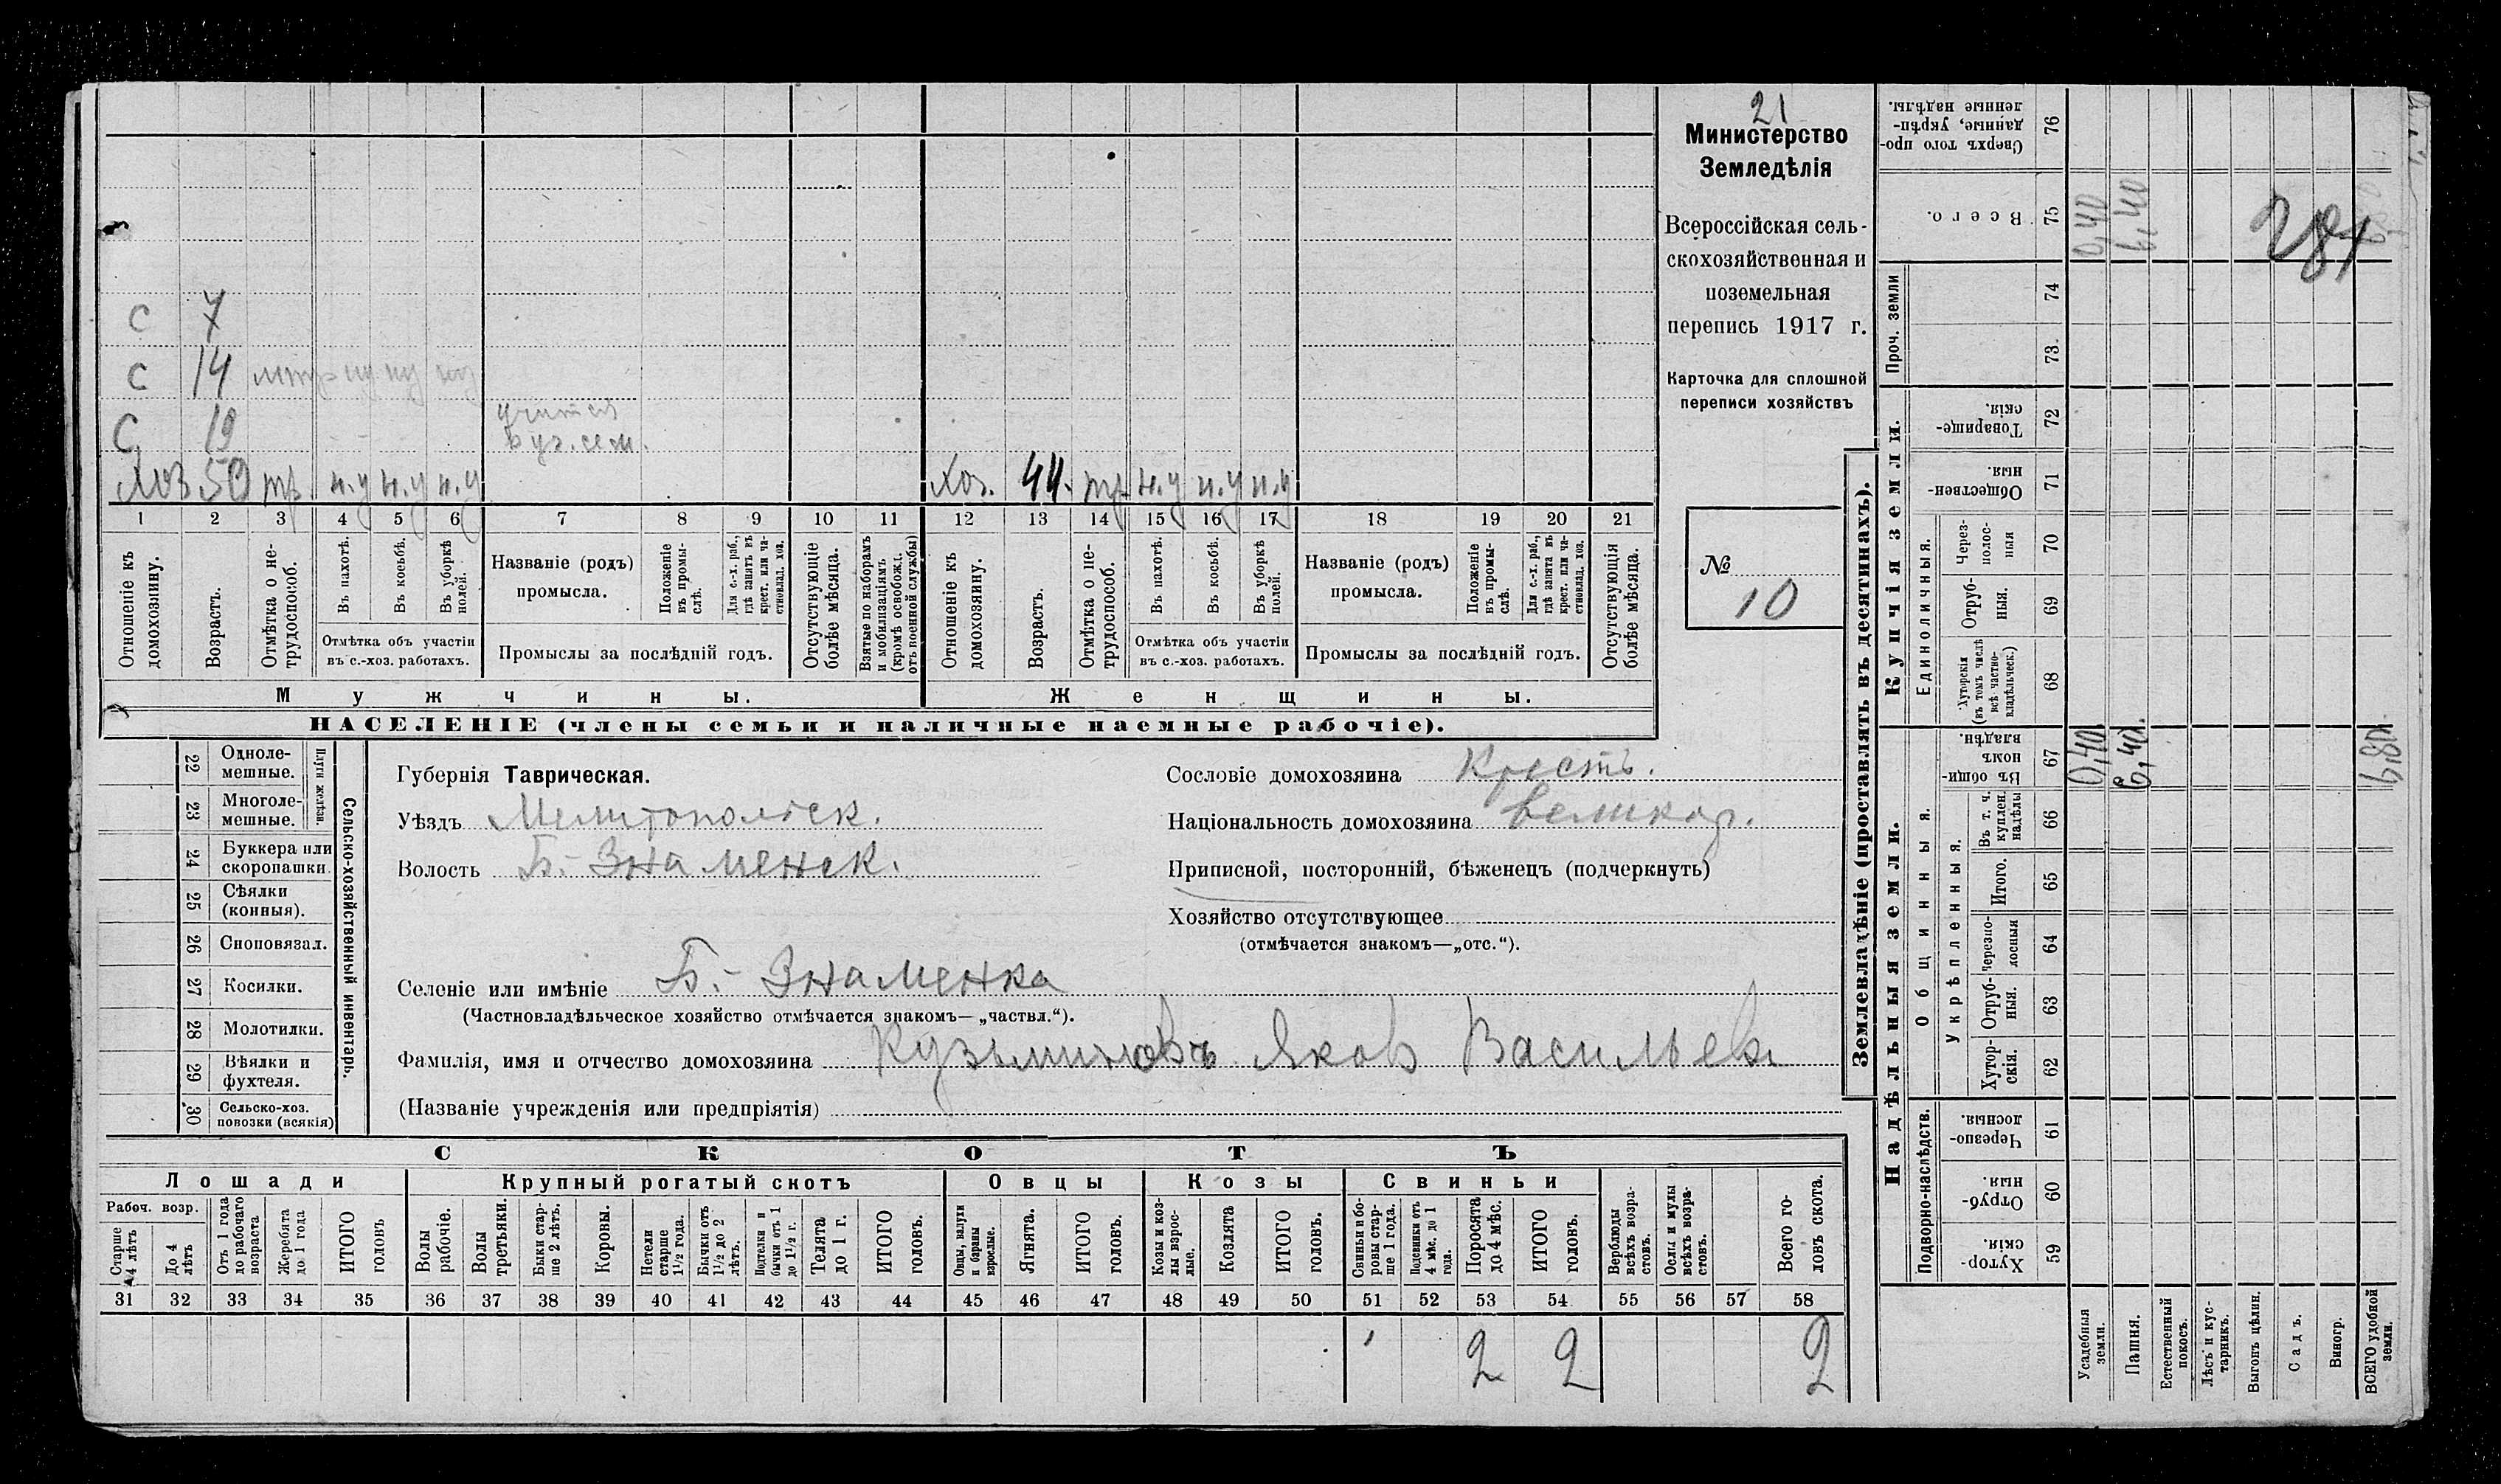 21
Министерство
Земледѣлія
Всероссійская сель-
скохозяйственная и
поземельная
перепись 1917 г.
Карточка для сплошной
переписи хозяйствъ
№
10
С 7
С 14
С 19 учится
в уч. сем.
хоз 50 тр. н.у н.у н.у хоз. 44. тр. н.у н.у н.у
1 2 3 4 5 6 7 8 9 10 11 12 13 14 15 16 17 18 19 20 21
Отношеніе къ домохозяину.
Возрастъ.
Отмѣтка о не-трудоспособ.
Въ пахотѣ.
Въ косьбѣ.
Въ уборкѣ полей.
Отмѣтка объ участіи
въ с.-хоз. работахъ.
Названіе (родъ)
промысла.
Положеніе въ промы-слѣ.
Для с.-х. раб., гдѣ занятъ въ крест. или ча-стновлад. хоз.
Промыслы за послѣдній годъ.
Отсутствующіе болѣе мѣсяца.
Взятые по наборамъ и мобилизаціямъ (кромѣ освобожд. отъ военной службы)
Отношеніе къ домохозяину.
Возрастъ.
Отмѣтка о не-трудоспособ.
Въ пахотѣ.
Въ косьбѣ.
Въ уборкѣ полей.
Отмѣтка объ участіи
въ с.-хоз. работахъ.
Названіе (родъ)
промысла.
Положеніе въ промы-слѣ.
Для с.-х. раб., гдѣ занята въ крест. или ча-стновлад. хоз.
Промыслы за послѣдній годъ.
Отсутствующія болѣе мѣсяца.
Мужчины. Женщины.
НАСЕЛЕНІЕ (члены семьи и наличные наемные рабочіе).
22 Одноле-мешные.
23 Многоле-мешные.
Плуги желѣзн.
24 Буккера или скоропашки
25 Сѣялки (конныя).
26 Сноповязал.
27 Косилки.
28 Молотилки.
29 Вѣялки и фухтеля.
30 Сельско-хоз. повозки (всякія)
Сельско-хозяйственный инвентарь.
Губернія Таврическая.
Уѣздъ Мелитопольск.
Волость Б.-Знаменск.
Селеніе или имѣніе Б.-Знаменка
(Частновладѣльческое хозяйство отмѣчается знакомъ—„частвл.“).
Фамилія, имя и отчество домохозяина Кузьминовъ Яков Васильев.
(Названіе учрежденія или предпріятія)
Сословіе домохозяина Крестъ.
Національность домохозяина великор.
Приписной, посторонній, бѣженецъ (подчеркнуть)
Хозяйство отсутствующее
(отмѣчается знакомъ—„отс.“).
СКОТЪ
Лошади Крупный рогатый скотъ Овцы Козы Свиньи
Рабоч. возр.
Старше 4 лѣтъ
До 4 лѣтъ
Отъ 1 года до рабочаго возраста
Жеребята до 1 года
ИТОГО головъ
Волы рабочіе.
Волы третьяки.
Быки стар-ше 2 лѣтъ.
Коровы.
Нетели старше 1½ года.
Бычки отъ 1½ до 2 лѣтъ.
Подтелки и бычки отъ 1 до 1½ г.
Телята до 1 г.
ИТОГО головъ.
Овцы, валухи и бараны взрослые.
Ягнята.
ИТОГО головъ.
Козы и коз-лы взрос-лые.
Козлята
ИТОГО головъ.
Свиньи и бо-ровы стар-ше 1 года.
Подсвинки отъ 4 мѣс. до 1 года.
Поросята до 4 мѣс.
ИТОГО головъ.
Верблюды всѣхъ возра-стовъ.
Ослы и мулы всѣхъ возра-стовъ.
Всего го-ловъ скота.
31 32 33 34 35 36 37 38 39 40 41 42 43 44 45 46 47 48 49 50 51 52 53 54 55 56 57 58
2 2 2
Землевладѣніе (проставлять въ десятинахъ).
Купчія земли.
Надѣльныя земли.
Сверхъ того про-данные, укрѣп-ленные надѣлы. 76
Всего. 75 0,40 6,40
281
Проч. земли
74
73.
Товарище-скія. 72
Обществен-ныя. 71
Единоличныя.
Через-полос-ныя 70
Отруб-ныя. 69
Хуторскія (въ томъ числѣ всѣ частно-владѣльческ.) 68
Въ общин-номъ владѣн. 67 0,40 6,40 6,80
Общинныя.
Укрѣпленныя.
Въ т. ч. куплен. надѣлы 66
Итого. 65
Черезпо-лосныя 64
Отруб-ныя. 63
Хутор-скія. 62
Подворно-наслѣдств.
Черезпо-лосныя 61
Отруб-ныя. 60
Хутор-скія. 59
Усадебныя земли.
Пашня.
Естественный покосъ.
Лѣсъ и кус-тарникъ.
Выгонъ цѣлин.
Садъ.
Виногр.
ВСЕГО удобной земли.